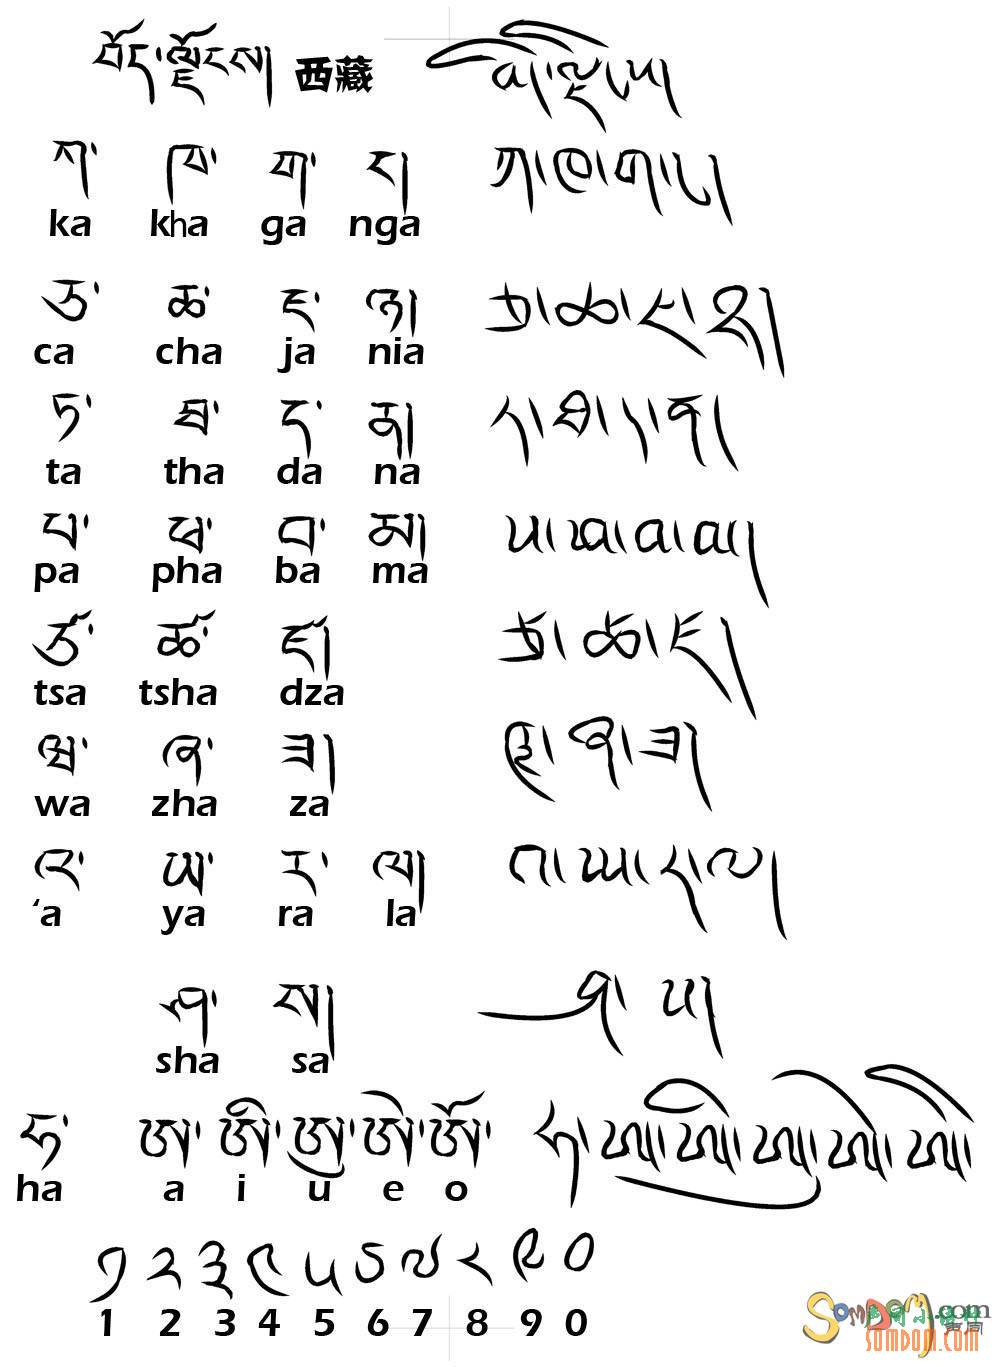 བོད་ལྗོངས། 西藏 བོད་ལྗོངས།
ཀ་ ཁ་ ག་ ང། ཀ་ཁ་ག་ང།
ka kha ga nga
ཅ་ ཆ་ ཇ་ ཉ། ཅ་ཆ་ཇ་ཉ།
ca cha ja nia
ཏ་ ཐ་ ད་ ན། ཏ་ཐ་ད་ན།
ta tha da na
པ་ ཕ་ བ་ མ། པ་ཕ་བ་མ།
pa pha ba ma
ཙ་ ཚ་ ཛ། ཙ་ཚ་ཛ།
tsa tsha dza
ཝ་ ཞ་ ཟ། ཝ་ཞ་ཟ།
wa zha za
འ་ ཡ་ ར་ ལ། འ་ཡ་ར་ལ།
‘a ya ra la
ཤ་ ས། ཤ་ ས།
sha sa
ཧ་ ཨ་ ཨི་ ཨུ་ ཨེ་ ཨོ་ ཧ་ཨ་ཨི་ཨུ་ཨེ་ཨོ།
ha a i u e o
༡ ༢ ༣ ༤ ༥ ༦ ༧ ༨ ༩ ༠
1 2 3 4 5 6 7 8 9 0
SOMDOM.com
SOMDOM.COM